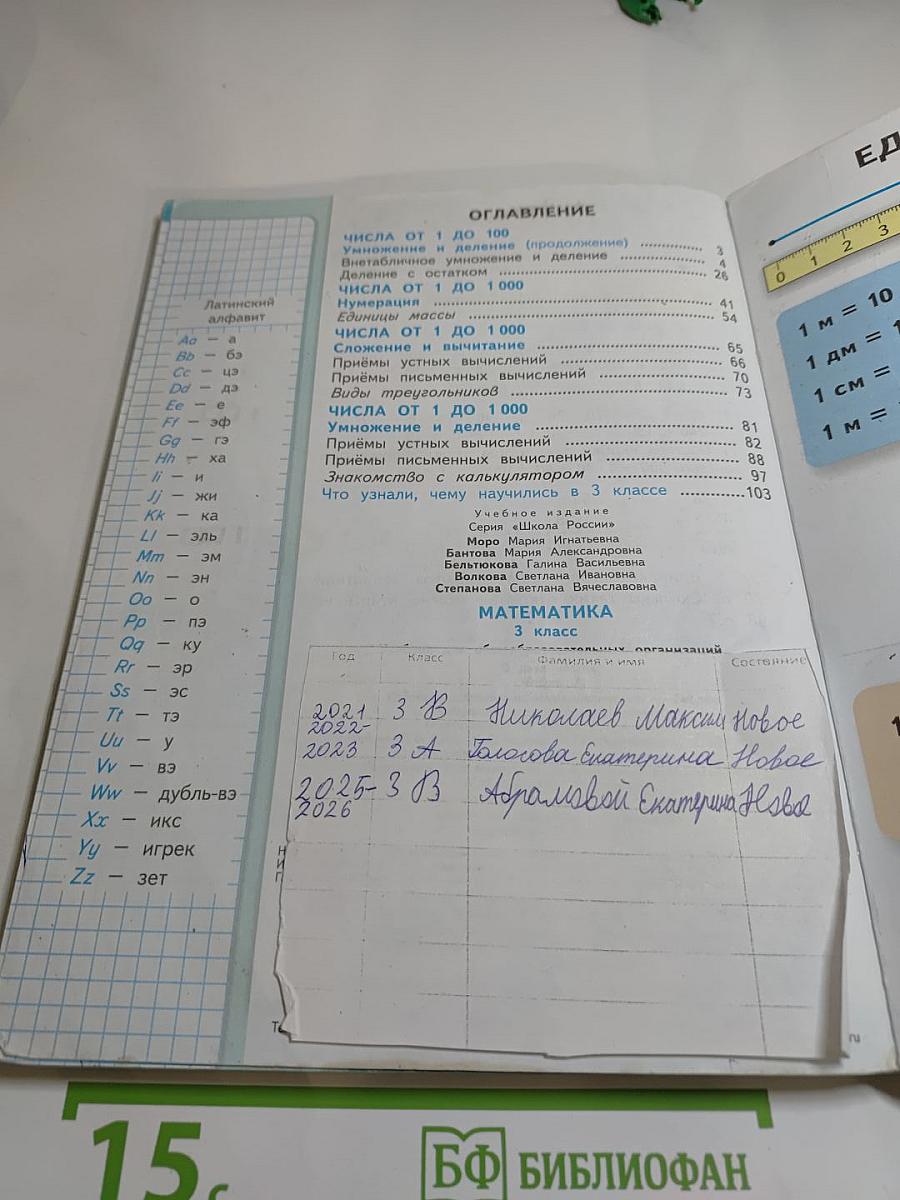 ОГЛАВЛЕНИЕ
ЧИСЛА ОТ 1 ДО 100
Умножение и деление (продолжение) 3
Внетабличное умножение и деление 4
Деление с остатком 26
ЧИСЛА ОТ 1 ДО 1 000
Нумерация 41
Единицы массы 54
ЧИСЛА ОТ 1 ДО 1 000
Сложение и вычитание 65
Приёмы устных вычислений 66
Приёмы письменных вычислений 70
Виды треугольников 73
ЧИСЛА ОТ 1 ДО 1 000
Умножение и деление 81
Приёмы устных вычислений 82
Приёмы письменных вычислений 88
Знакомство с калькулятором 97
Что узнали, чему научились в 3 классе 103
Учебное издание
Серия «Школа России»
Моро Мария Игнатьевна
Бантова Мария Александровна
Бельтюкова Галина Васильевна
Волкова Светлана Ивановна
Степанова Светлана Вячеславовна
МАТЕМАТИКА
3 класс
организаций
Год Класс Фамилия и имя Состояние
2021 3 В Николаев Максим Новое
2022-
2023 3 А Голосова Екатерина Новое
2025- 3 В Абрамовой Екатерина
2026
Латинский
алфавит
Aa — а
Bb — бэ
Cc — цэ
Dd — дэ
Ee — е
Ff — эф
Gg — гэ
Hh — ха
Ii — и
Jj — жи
Kk — ка
Ll — эль
Mm — эм
Nn — эн
Oo — о
Pp — пэ
Qq — ку
Rr — эр
Ss — эс
Tt — тэ
Uu — у
Vv — вэ
Ww — дубль-вэ
Xx — икс
Yy — игрек
Zz — зет
Н
И
П
ЕД
0 1 2 3
1 м = 10
1 дм = 1
1 см =
1 м =
15 с
БФ БИБЛИОФАН